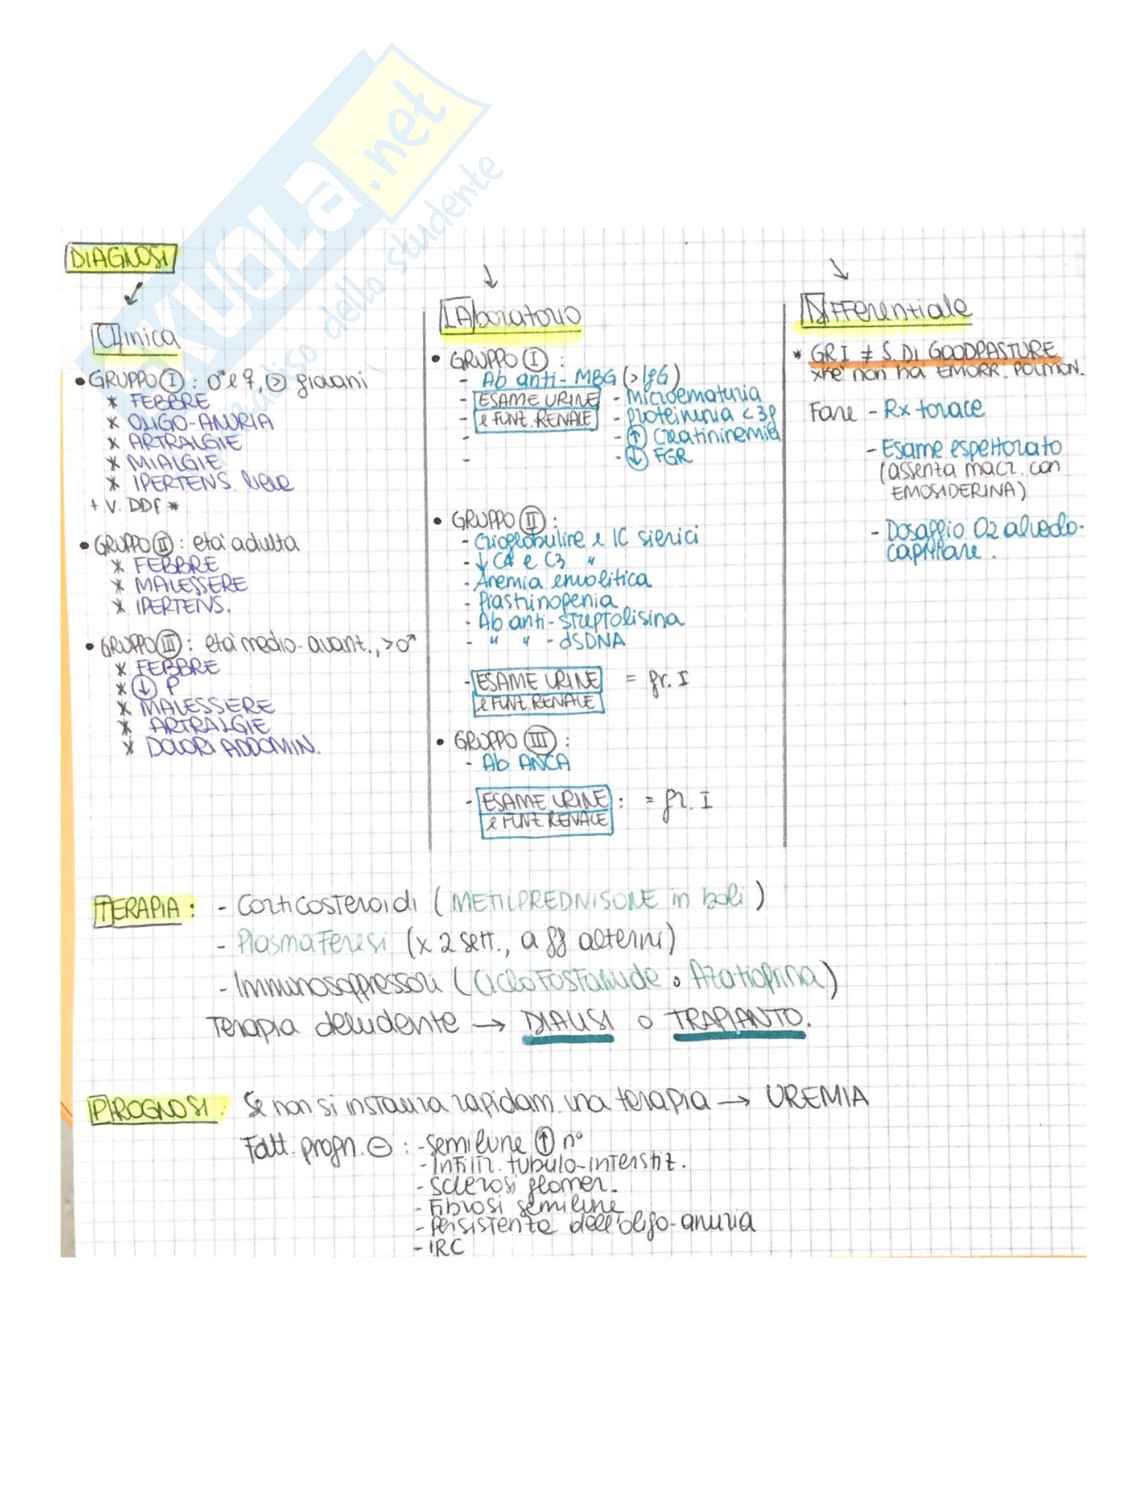 KUOLA.net
dello studente
DIAGNOSI
Clinica
• GRUPPO I : ♂ e ♀, > giovani
* FEBBRE
* OLIGO-ANURIA
* ARTRALGIE
* MIALGIE
* IPERTENS. lieve
+ V. DDF *
• GRUPPO II : età adulta
* FEBBRE
* MALESSERE
* IPERTENS.
• GRUPPO III : età medio-avant., > ♂
* FEBBRE
* ↓ P
* MALESSERE
* ARTRALGIE
* DOLORI ADDOMIN.
LABoratorio
• GRUPPO I :
- Ab anti-MBG (> IgG)
- ESAME URINE - Microematuria
e FUNZ. RENALE - proteinuria < 3g
- - ↑ Creatininemia
- - ↓ FGR
• GRUPPO II :
- Crioglobuline e IC sierici
- ↓ C4 e C3 "
- Anemia emolitica
- Piastrinopenia
- Ab anti-streptolisina
- " " - dSDNA
- ESAME URINE = gr. I
e FUNZ. RENALE
• GRUPPO III :
- Ab ANCA
- ESAME URINE : = gr. I
e FUNZ. RENALE
DIFFerenziale
* GR I ≠ S. DI GOODPASTURE
xké non ha EMORR. POLMON.
Fare - Rx torace
- Esame espettorato
(assenza macr. con
EMOSIDERINA)
- Dosaggio O2 alveolo-
capillare.
TERAPIA : - Corticosteroidi (METILPREDNISONE in boli)
- Plasmaferesi (x 2 sett., a gg alterni)
- Immunosoppressori (Ciclofosfamide o Azatioprina)
Terapia deludente → DIALISI o TRAPIANTO.
PROGNOSI : Se non si instaura rapidam. una terapia → UREMIA
Fatt. progn. ⊖ : - semilune ↑ n°
- Infiltr. tubulo-interstiz.
- Sclerosi glomer.
- Fibrosi semilune
- Persistenza dell'oligo-anuria
- IRC